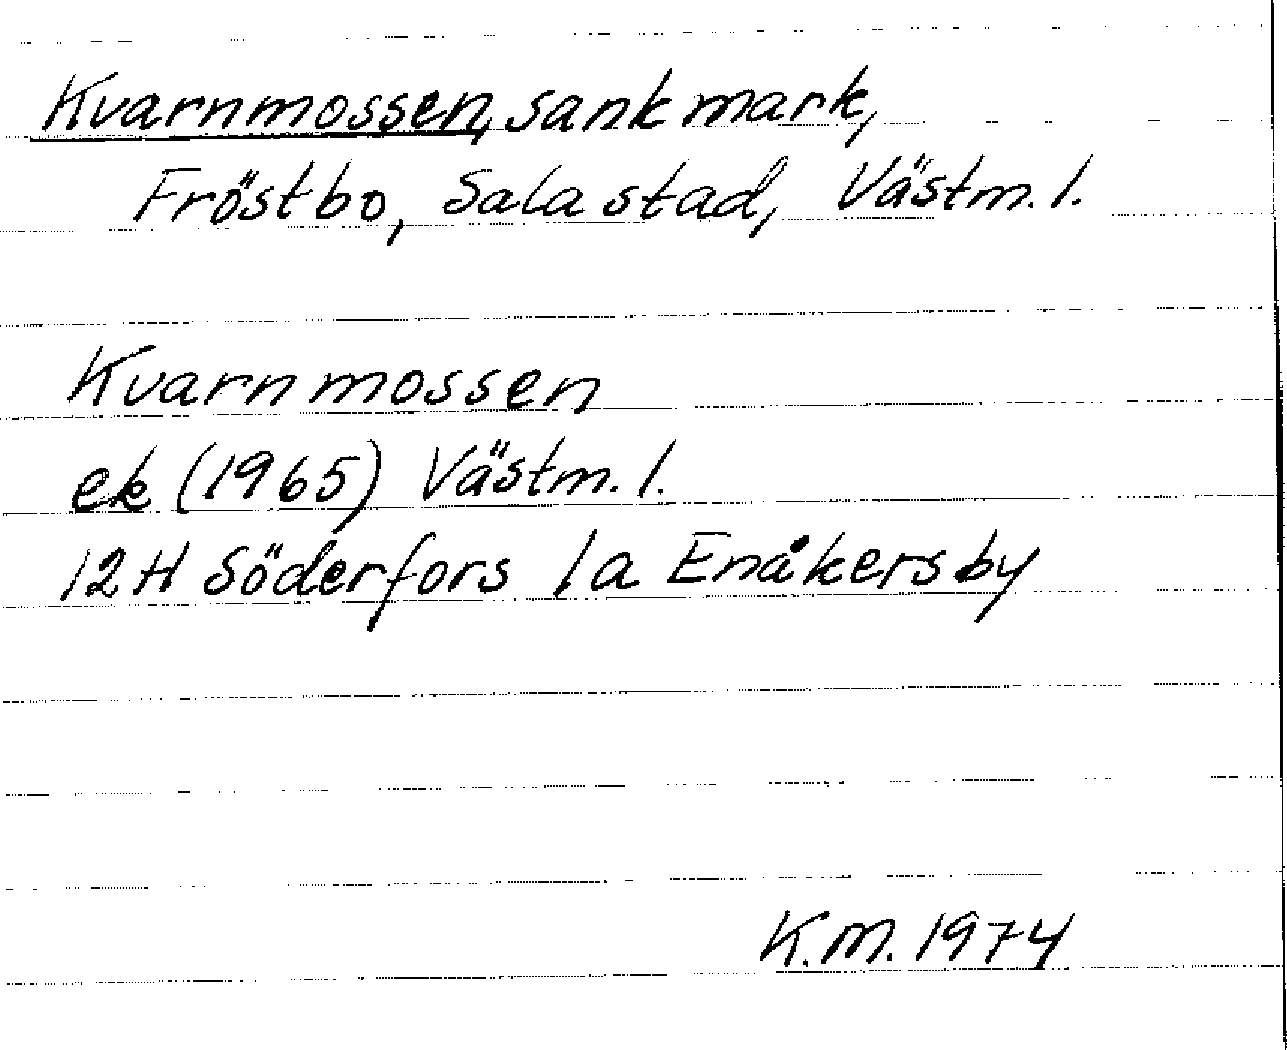 Kvarnmossen, sankmark,
Fröstbo, Sala stad, Västm. l.
Kvarnmossen
ek (1965) Västm. l.
12H Söderfors 1a Enåkersby
K.M. 1974